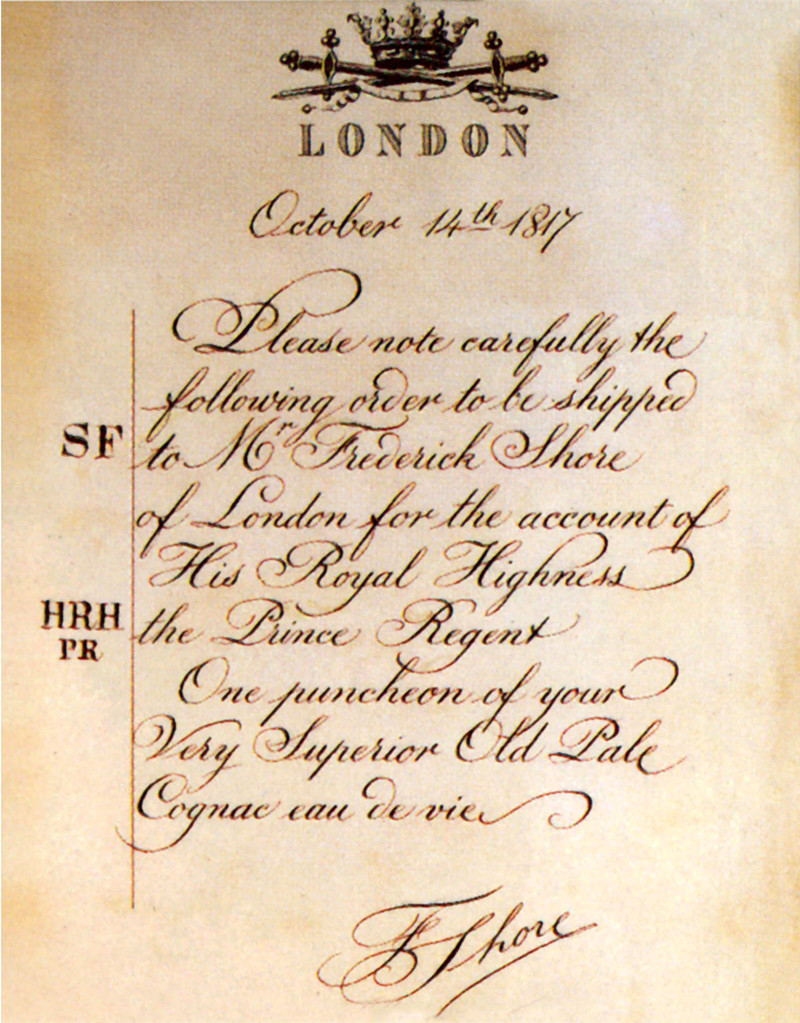 LONDON
October 14th 1817
Please note carefully the
following order to be shipped
SF
to Mr Frederick Shore
of London for the account of
His Royal Highness
HRH
PR
the Prince Regent
One puncheon of your
Very Superior Old Pale
Cognac eau de vie
F Shore